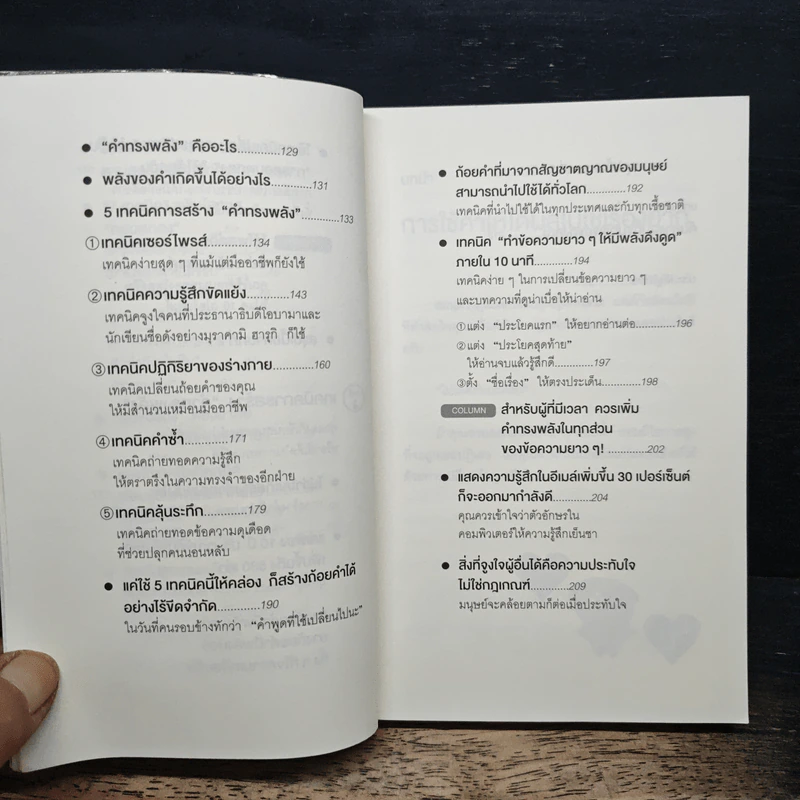 ● "คำทรงพลัง" คืออะไร............129
● พลังของคำเกิดขึ้นได้อย่างไร...........131
● 5 เทคนิคการสร้าง "คำทรงพลัง"...........133
①เทคนิคเซอร์ไพรส์............134
เทคนิคง่ายสุด ๆ ที่แม้แต่มืออาชีพก็ยังใช้
②เทคนิคความรู้สึกขัดแย้ง............143
เทคนิคจูงใจคนที่ประธานาธิบดีโอบามาและ
นักเขียนชื่อดังอย่างมุราคามิ ฮารุกิ ก็ใช้
③เทคนิคปฏิกิริยาของร่างกาย............160
เทคนิคเปลี่ยนถ้อยคำของคุณ
ให้มีสำนวนเหมือนมืออาชีพ
④เทคนิคคำซ้ำ............171
เทคนิคถ่ายทอดความรู้สึก
ให้ตราตรึงในความทรงจำของอีกฝ่าย
⑤เทคนิคลุ้นระทึก............179
เทคนิคถ่ายทอดข้อความดุเดือด
ที่ช่วยปลุกคนนอนหลับ
● แค่ใช้ 5 เทคนิคนี้ให้คล่อง ก็สร้างถ้อยคำได้
อย่างไร้ขีดจำกัด............190
ในวันที่คนรอบข้างทักว่า "คำพูดที่ใช้เปลี่ยนไปนะ"
● ถ้อยคำที่มาจากสัญชาตญาณของมนุษย์
สามารถนำไปใช้ได้ทั่วโลก............192
เทคนิคที่นำไปใช้ได้ในทุกประเทศและกับทุกเชื้อชาติ
● เทคนิค "ทำข้อความยาว ๆ ให้มีพลังดึงดูด"
ภายใน 10 นาที............194
เทคนิคง่าย ๆ ในการเปลี่ยนข้อความยาว ๆ
และบทความที่ดูน่าเบื่อให้น่าอ่าน
①แต่ง "ประโยคแรก" ให้อยากอ่านต่อ............196
②แต่ง "ประโยคสุดท้าย"
ให้อ่านจบแล้วรู้สึกดี............197
③ตั้ง "ชื่อเรื่อง" ให้ตรงประเด็น............198
COLUMN สำหรับผู้ที่มีเวลา ควรเพิ่ม
คำทรงพลังในทุกส่วน
ของข้อความยาว ๆ! ............202
● แสดงความรู้สึกในอีเมล์เพิ่มขึ้น 30 เปอร์เซ็นต์
ก็จะออกมากำลังดี............204
คุณควรเข้าใจว่าตัวอักษรใน
คอมพิวเตอร์ให้ความรู้สึกเย็นชา
● สิ่งที่จูงใจผู้อื่นได้คือความประทับใจ
ไม่ใช่กฎเกณฑ์............209
มนุษย์จะคล้อยตามก็ต่อเมื่อประทับใจ